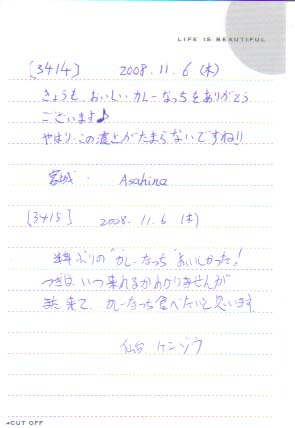 LIFE IS BEAUTIFUL
[3414] 2008.11.6 (木)
きょうも、おいしいカレーなっちをありがとう
ございます♪
やはり、この濃とがたまらないですね!!
宮城. Asahina
[3415] 2008.11.6 (木)
ぶりの"カレーなっち"おいしかった!
つぎは、いつ来れるかわかりませんが
また来て、カレーなっち食べたいと思います.
仙台 ケンゾウ
CUT OFF